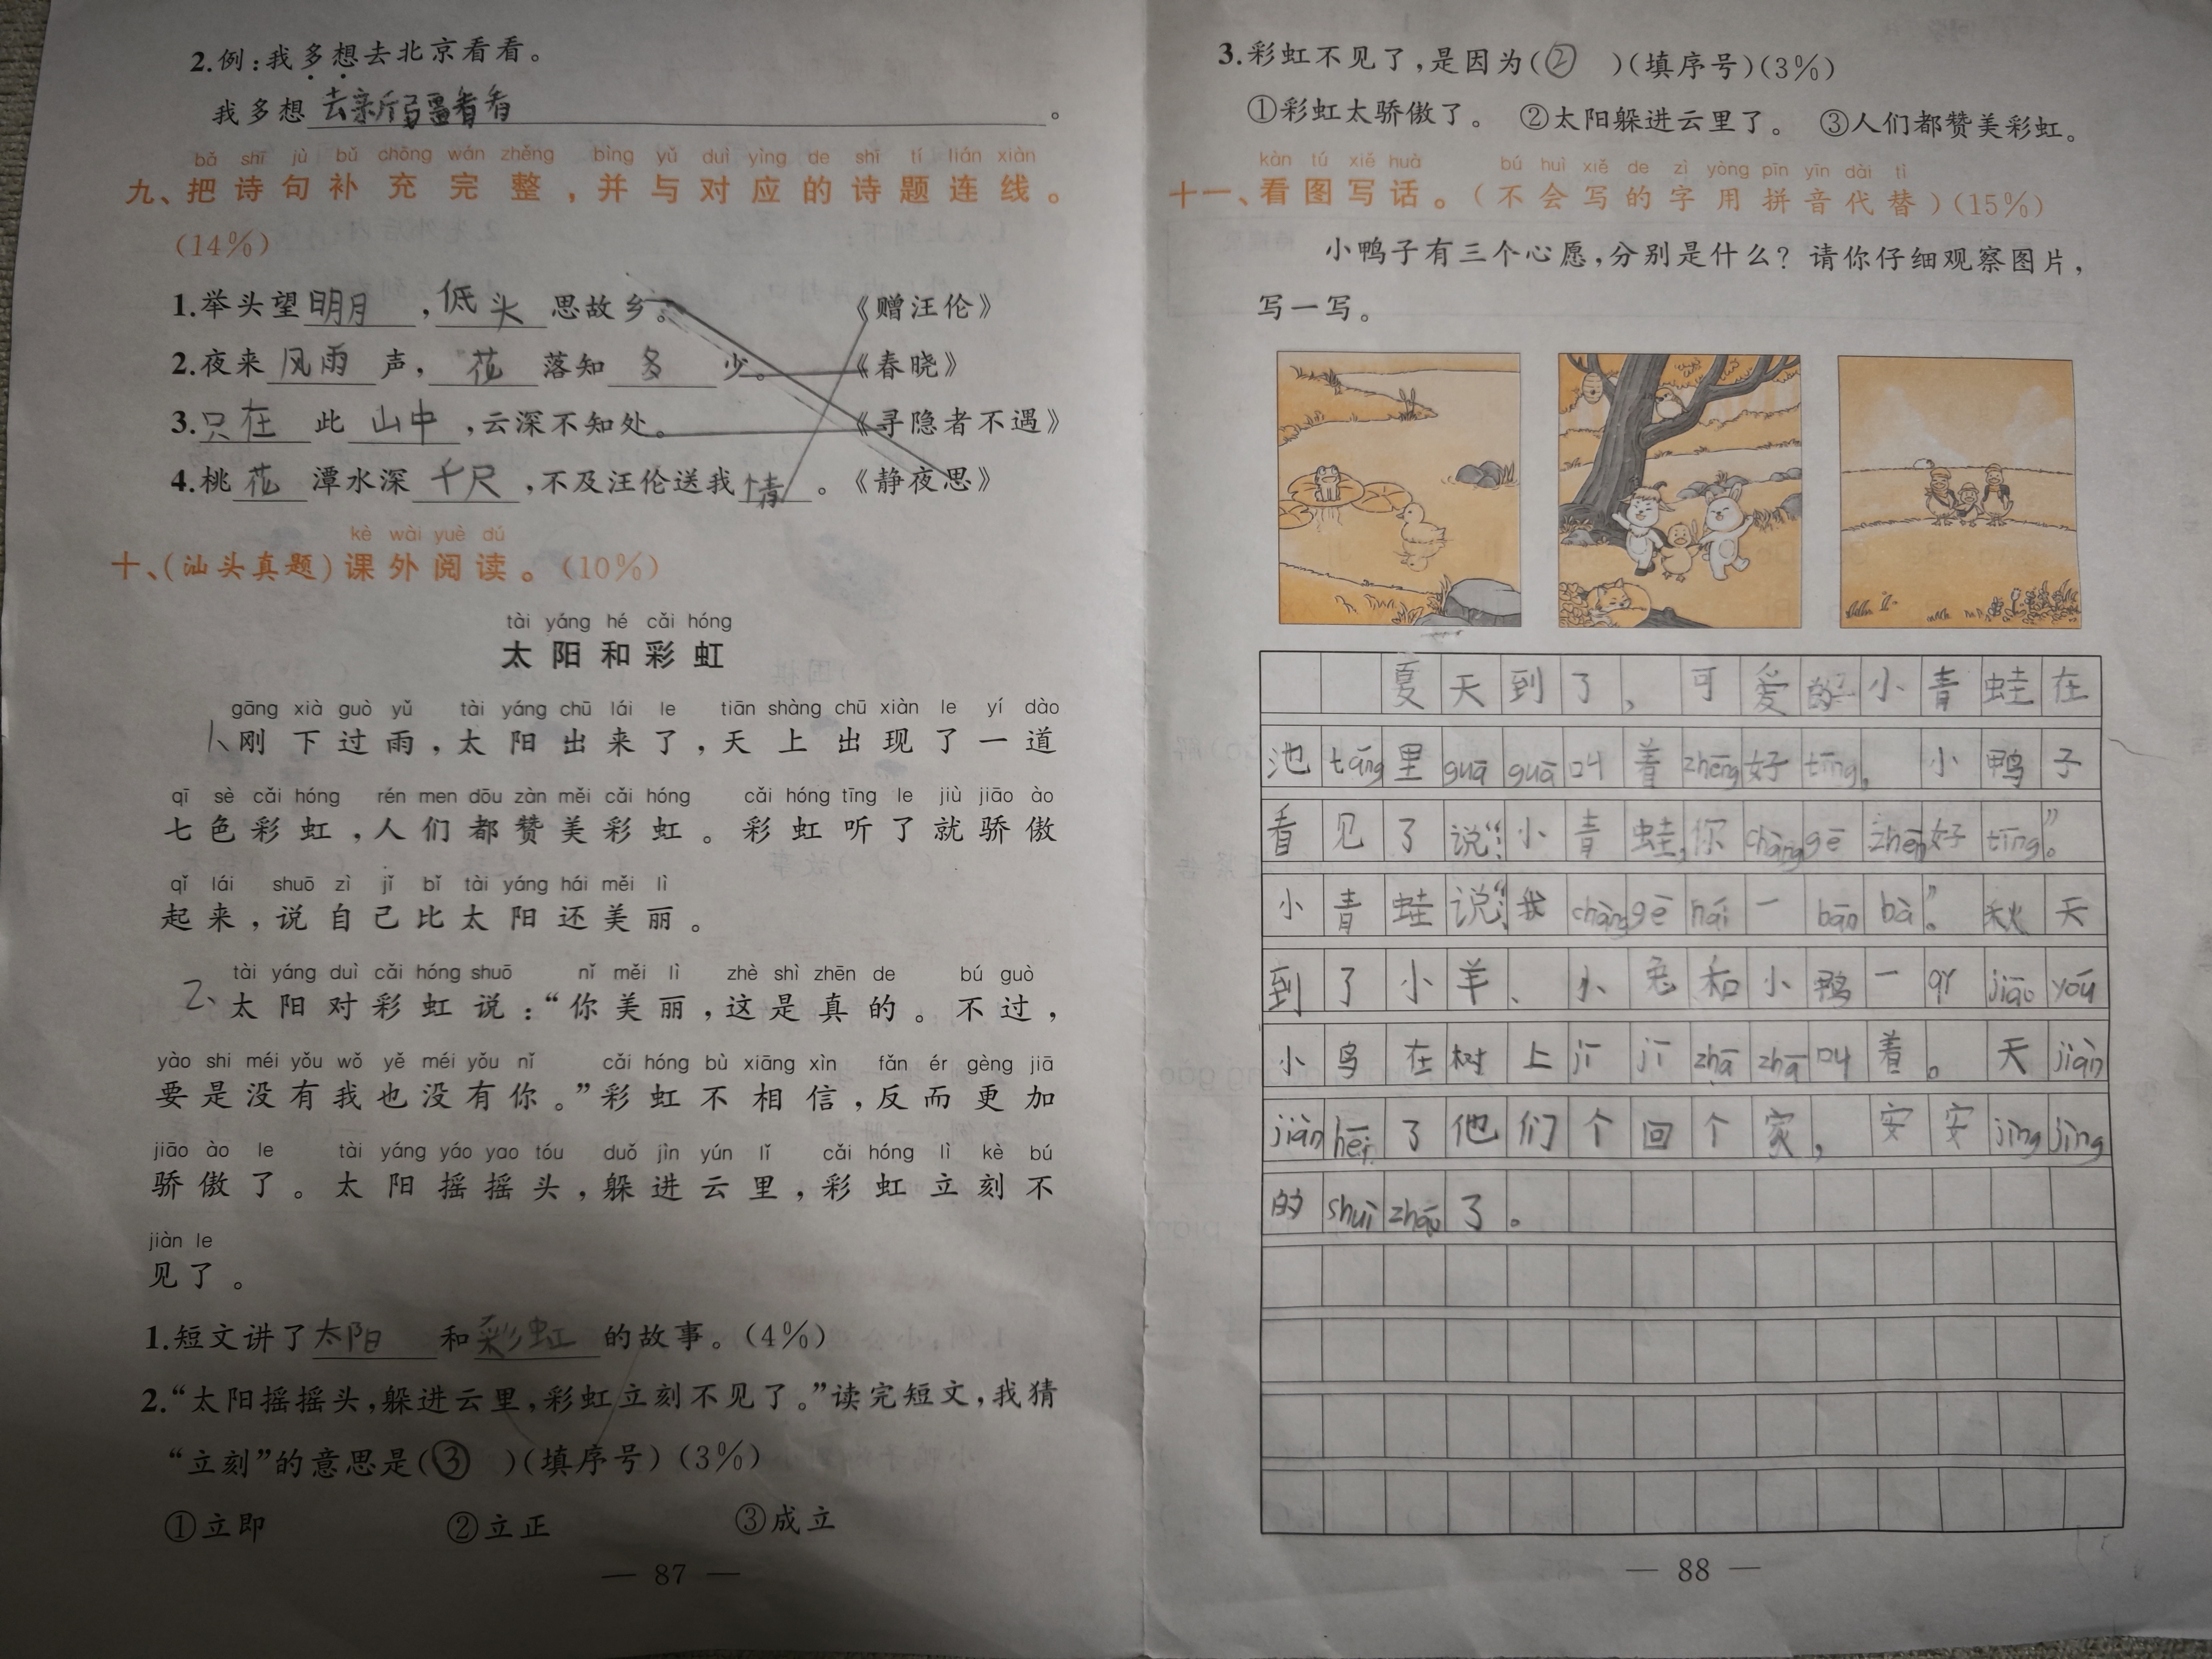 2.例:我多想去北京看看。
我多想去新疆看看。
bǎ shī jù bǔ chōng wán zhěng bìng yǔ duì yìng de shī tí lián xiàn
九、把诗句补充完整,并与对应的诗题连线。
(14%)
1.举头望明月,低头思故乡。 《赠汪伦》
2.夜来风雨声,花落知多少。 《春晓》
3.只在此山中,云深不知处。 《寻隐者不遇》
4.桃花潭水深千尺,不及汪伦送我情。 《静夜思》
kè wài yuè dú
十、(汕头真题)课外阅读。(10%)
tài yáng hé cǎi hóng
太阳和彩虹
gāng xià guò yǔ tài yáng chū lái le tiān shàng chū xiàn le yí dào
1、刚下过雨,太阳出来了,天上出现了一道
qī sè cǎi hóng rén men dōu zàn měi cǎi hóng cǎi hóng tīng le jiù jiāo ào
七色彩虹,人们都赞美彩虹。彩虹听了就骄傲
qǐ lái shuō zì jǐ bǐ tài yáng hái měi lì
起来,说自己比太阳还美丽。
tài yáng duì cǎi hóng shuō nǐ měi lì zhè shì zhēn de bú guò
2、太阳对彩虹说:“你美丽,这是真的。不过,
yào shi méi yǒu wǒ yě méi yǒu nǐ cǎi hóng bù xiāng xìn fǎn ér gèng jiā
要是没有我也没有你。”彩虹不相信,反而更加
jiāo ào le tài yáng yáo yao tóu duǒ jìn yún lǐ cǎi hóng lì kè bú
骄傲了。太阳摇摇头,躲进云里,彩虹立刻不
jiàn le
见了。
1.短文讲了太阳和彩虹的故事。(4%)
2.“太阳摇摇头,躲进云里,彩虹立刻不见了。”读完短文,我猜
“立刻”的意思是(③)(填序号)(3%)
①立即 ②立正 ③成立
— 87 —
3.彩虹不见了,是因为(②)(填序号)(3%)
①彩虹太骄傲了。 ②太阳躲进云里了。 ③人们都赞美彩虹。
kàn tú xiě huà bú huì xiě de zì yòng pīn yīn dài tì
十一、看图写话。(不会写的字用拼音代替)(15%)
小鸭子有三个心愿,分别是什么?请你仔细观察图片,
写一写。
夏天到了,可爱的小青蛙在
池táng里guā guā叫着zhēng好tīng。小鸭子
看见了说:“小青蛙,你chàng gē zhēn好tīng。”
小青蛙说:“我chàng gē hái一bān bà。”秋天
到了小羊、小兔和小鸭一qǐ jiāo yóu
小鸟在树上jī jī zhā zhā叫着。天jiàn
jiàn hēi了他们个回个家,安安jìng jìng
的shuì zháo了。
— 88 —